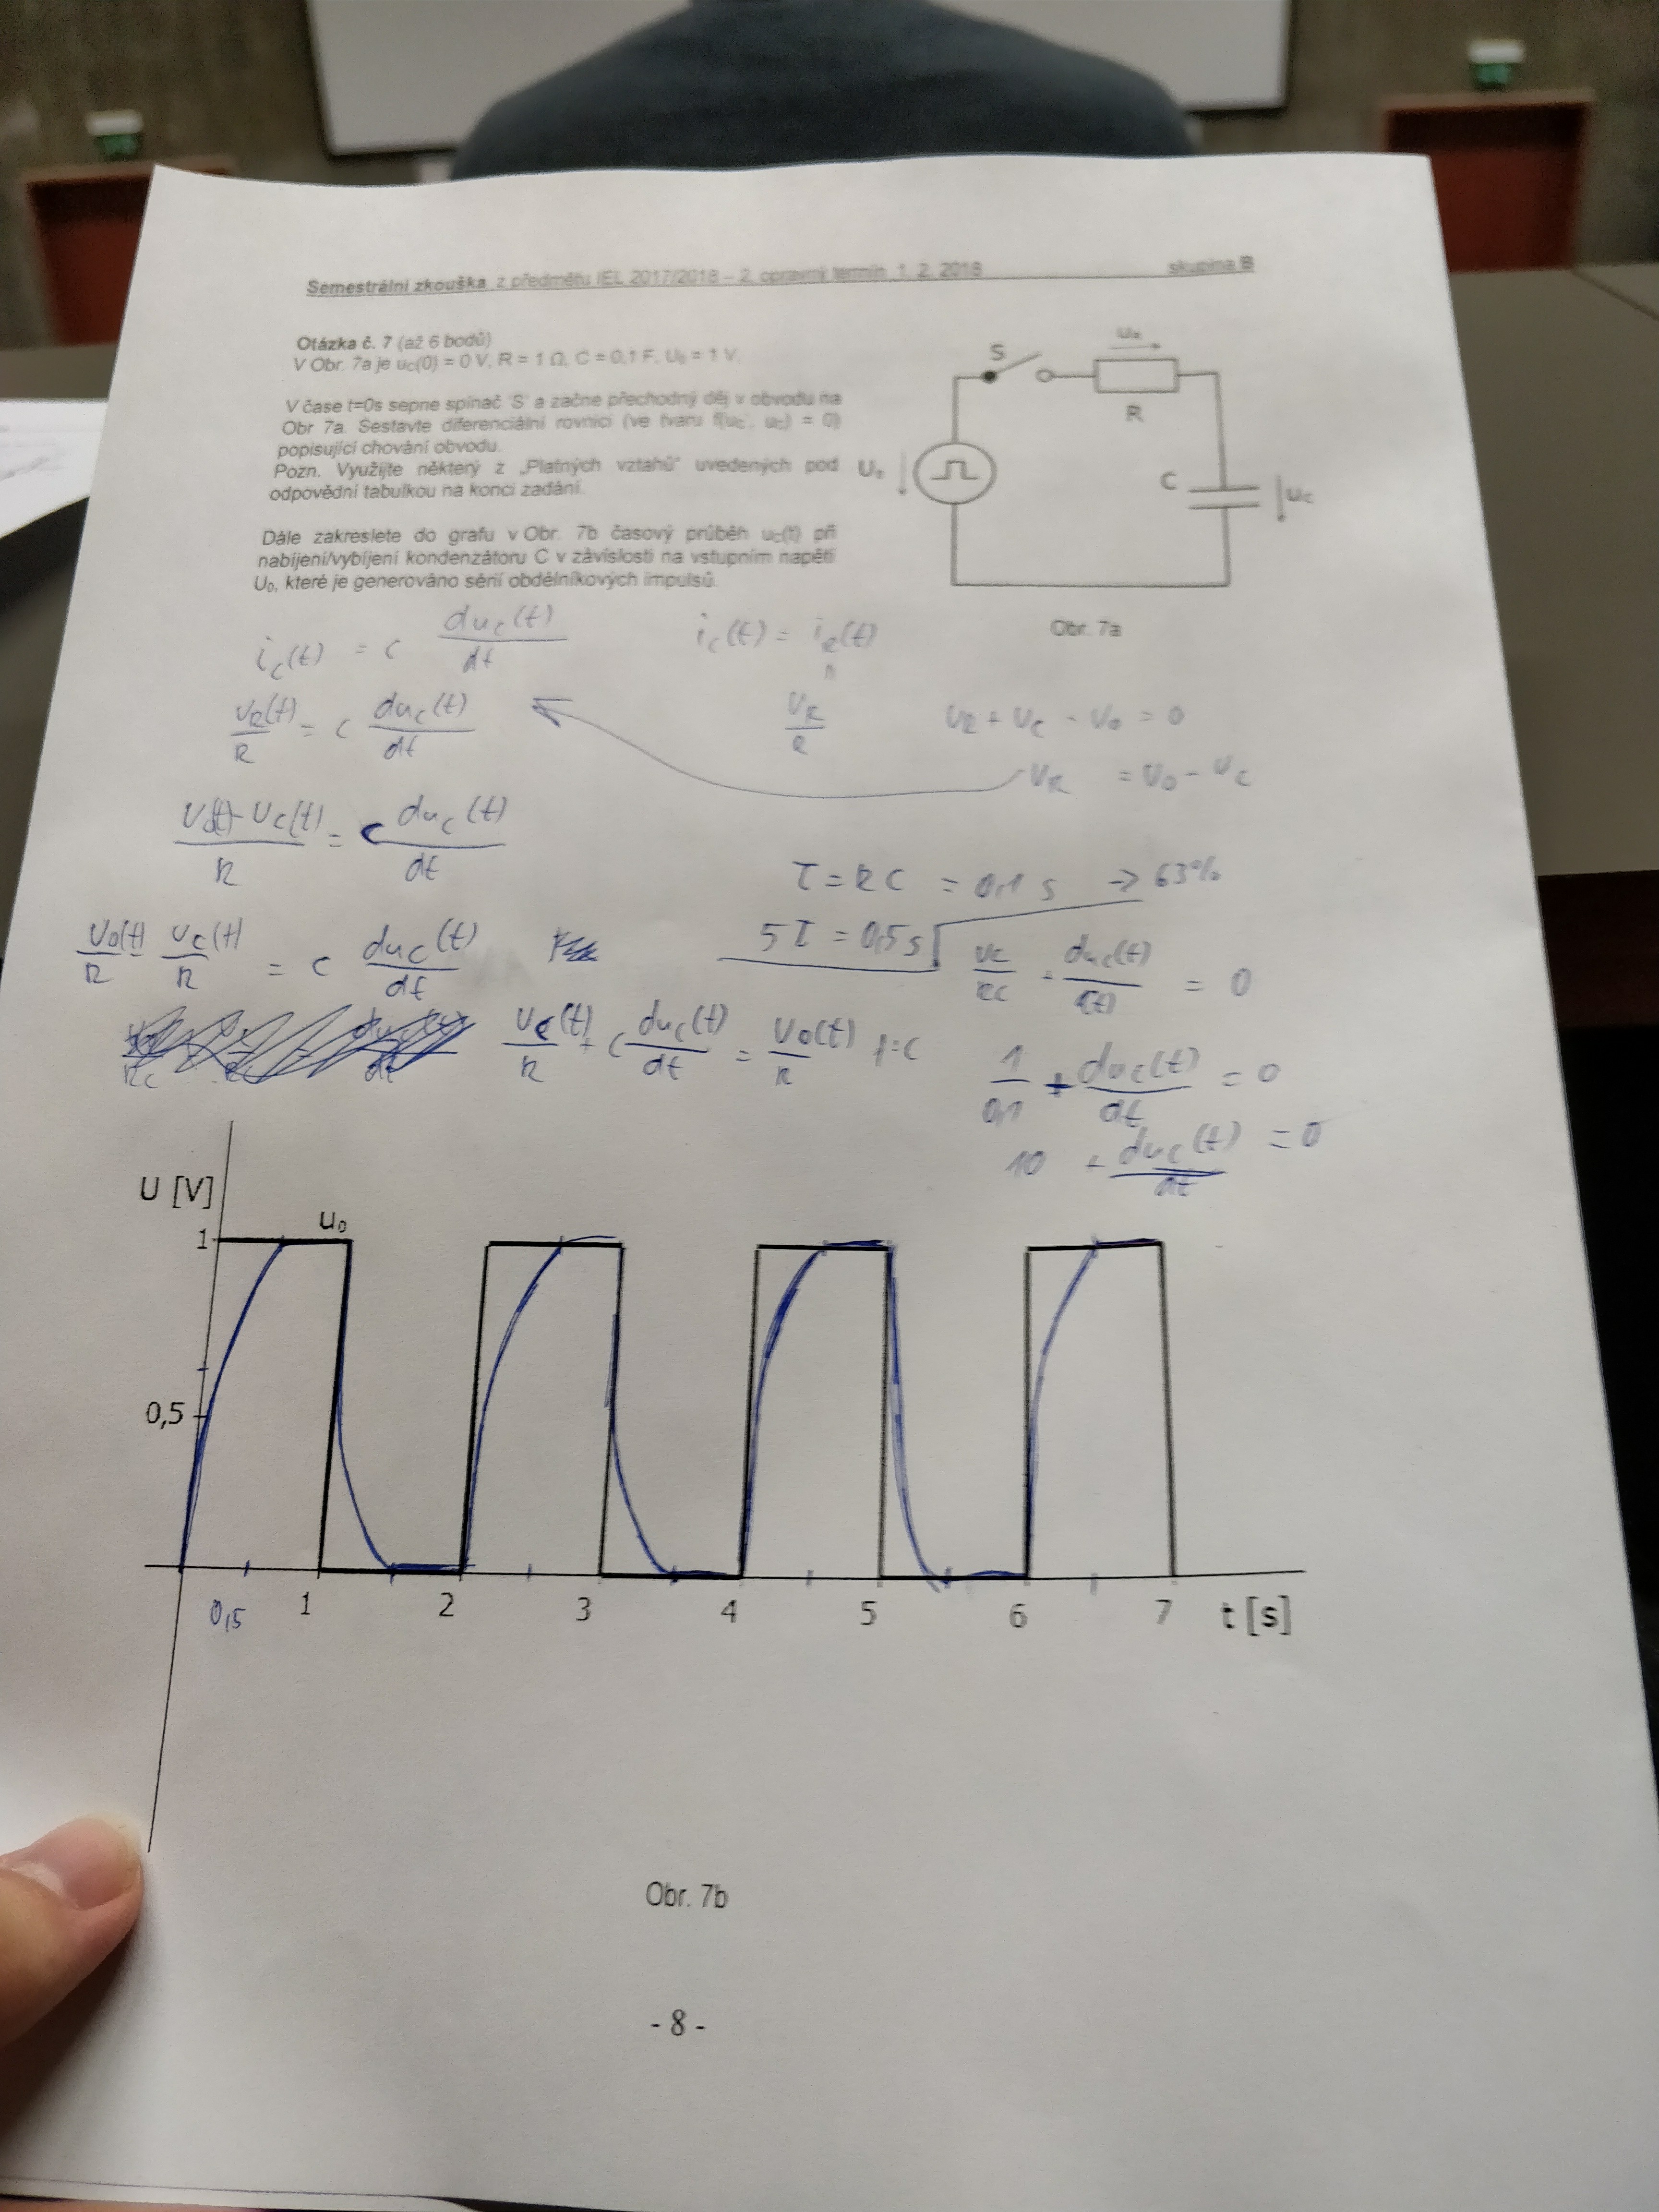 Semestrální zkouška z předmětu IEL 2017/2018 – 2. opravný termín 1. 2. 2018 skupina B
Otázka č. 7 (až 6 bodů)
V Obr. 7a je uC(0) = 0 V, R = 1 Ω, C = 0,1 F, U₀ = 1 V.
V čase t=0s sepne spínač 'S' a začne přechodný děj v obvodu na
Obr 7a. Sestavte diferenciální rovnici (ve tvaru f(uC', uC) = 0)
popisující chování obvodu.
Pozn. Využijte některý z „Platných vztahů" uvedených pod
odpovědní tabulkou na konci zadání.
Dále zakreslete do grafu v Obr. 7b časový průběh uC(t) při
nabíjení/vybíjení kondenzátoru C v závislosti na vstupním napětí
U₀, které je generováno sérií obdélníkových impulsů.
S
uR
R
U₀
C
uC
Obr. 7a
iC(t) = C duC(t)/dt
iC(t) = iR(t)
uR(t)/R = C duC(t)/dt
UR/R
UR + UC - U0 = 0
UR = U0 - UC
U0(t) - UC(t)/R = C duC(t)/dt
τ = RC = 0,1 s → 63%
5τ = 0,5 s
U0(t)/R - UC(t)/R = C duC(t)/dt
UC/RC + duC(t)/dt = 0
UC(t)/R + C duC(t)/dt = U0(t)/R /:C
1/0,1 + duC(t)/dt = 0
10 + duC(t)/dt = 0
U [V]
1
u₀
0,5
0,5 1 2 3 4 5 6 7 t [s]
Obr. 7b
- 8 -